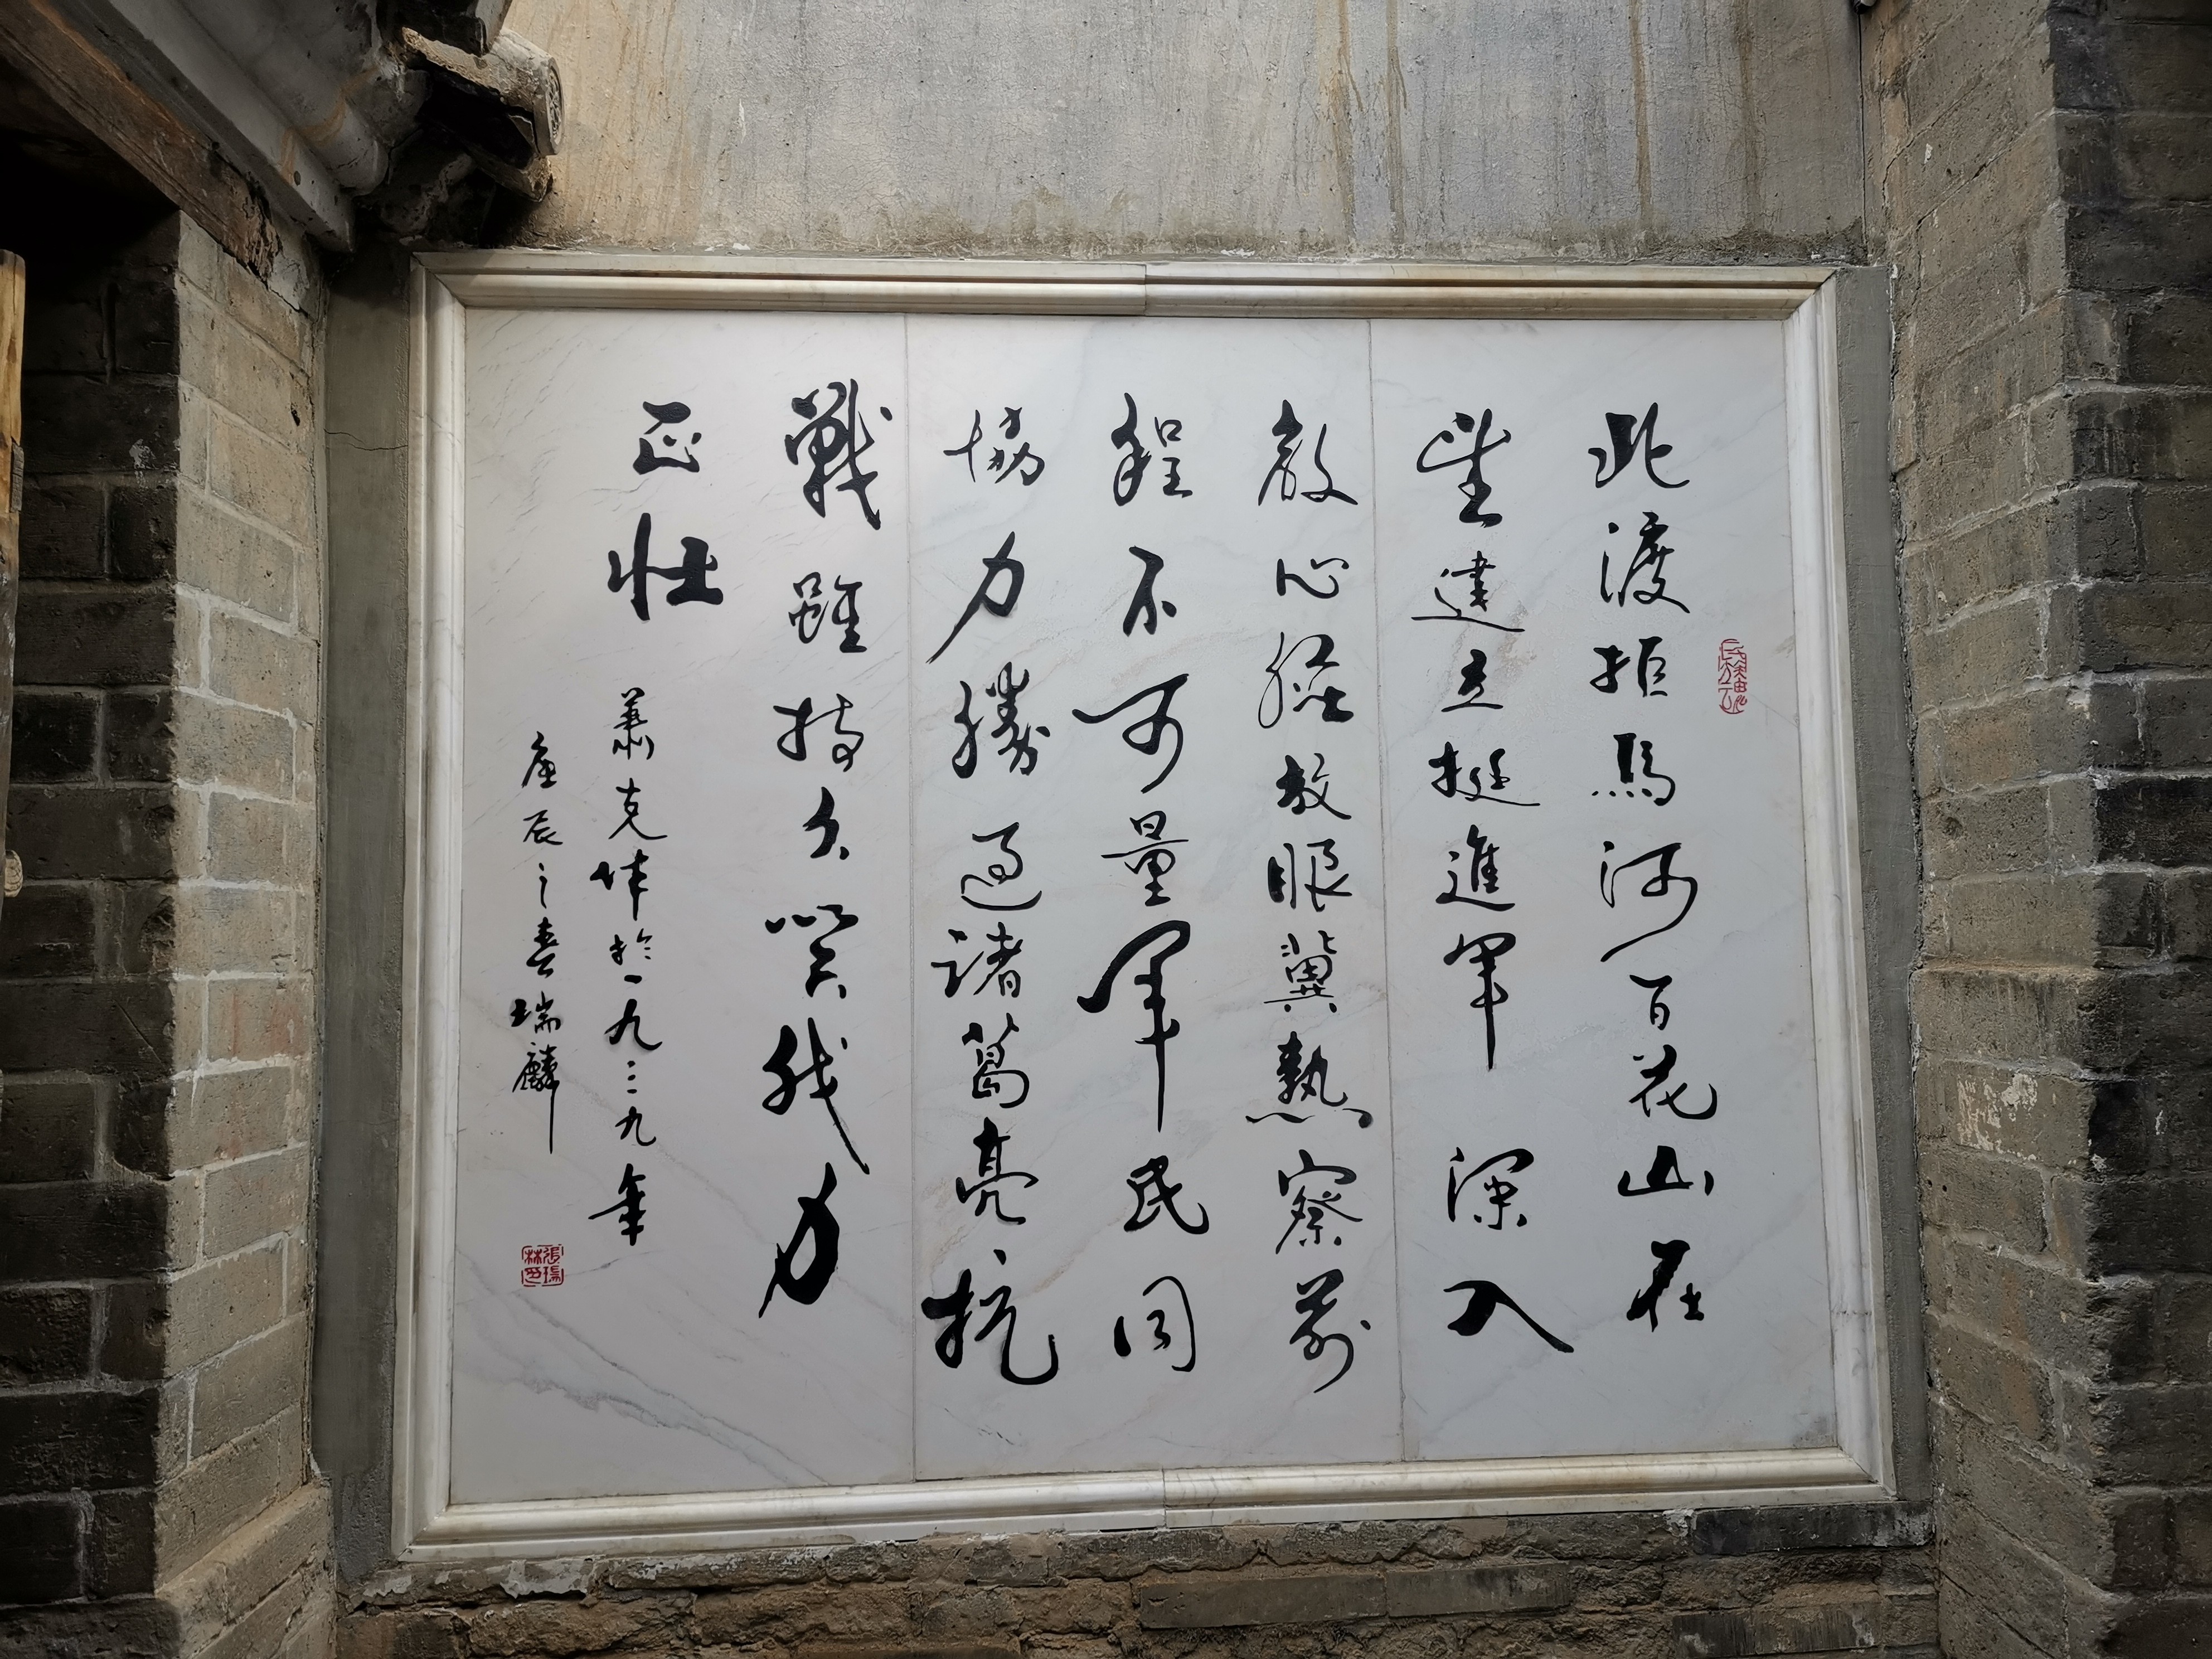 民族魂
北渡拒馬河百花山在
望建立挺進軍深入
敵心臟放眼冀熱察前
程不可量軍民同
協力勝過諸葛亮抗
戰雖持久我力
正壯
蕭克作於一九三九年
庚辰之春瑞麟
張瑞林印